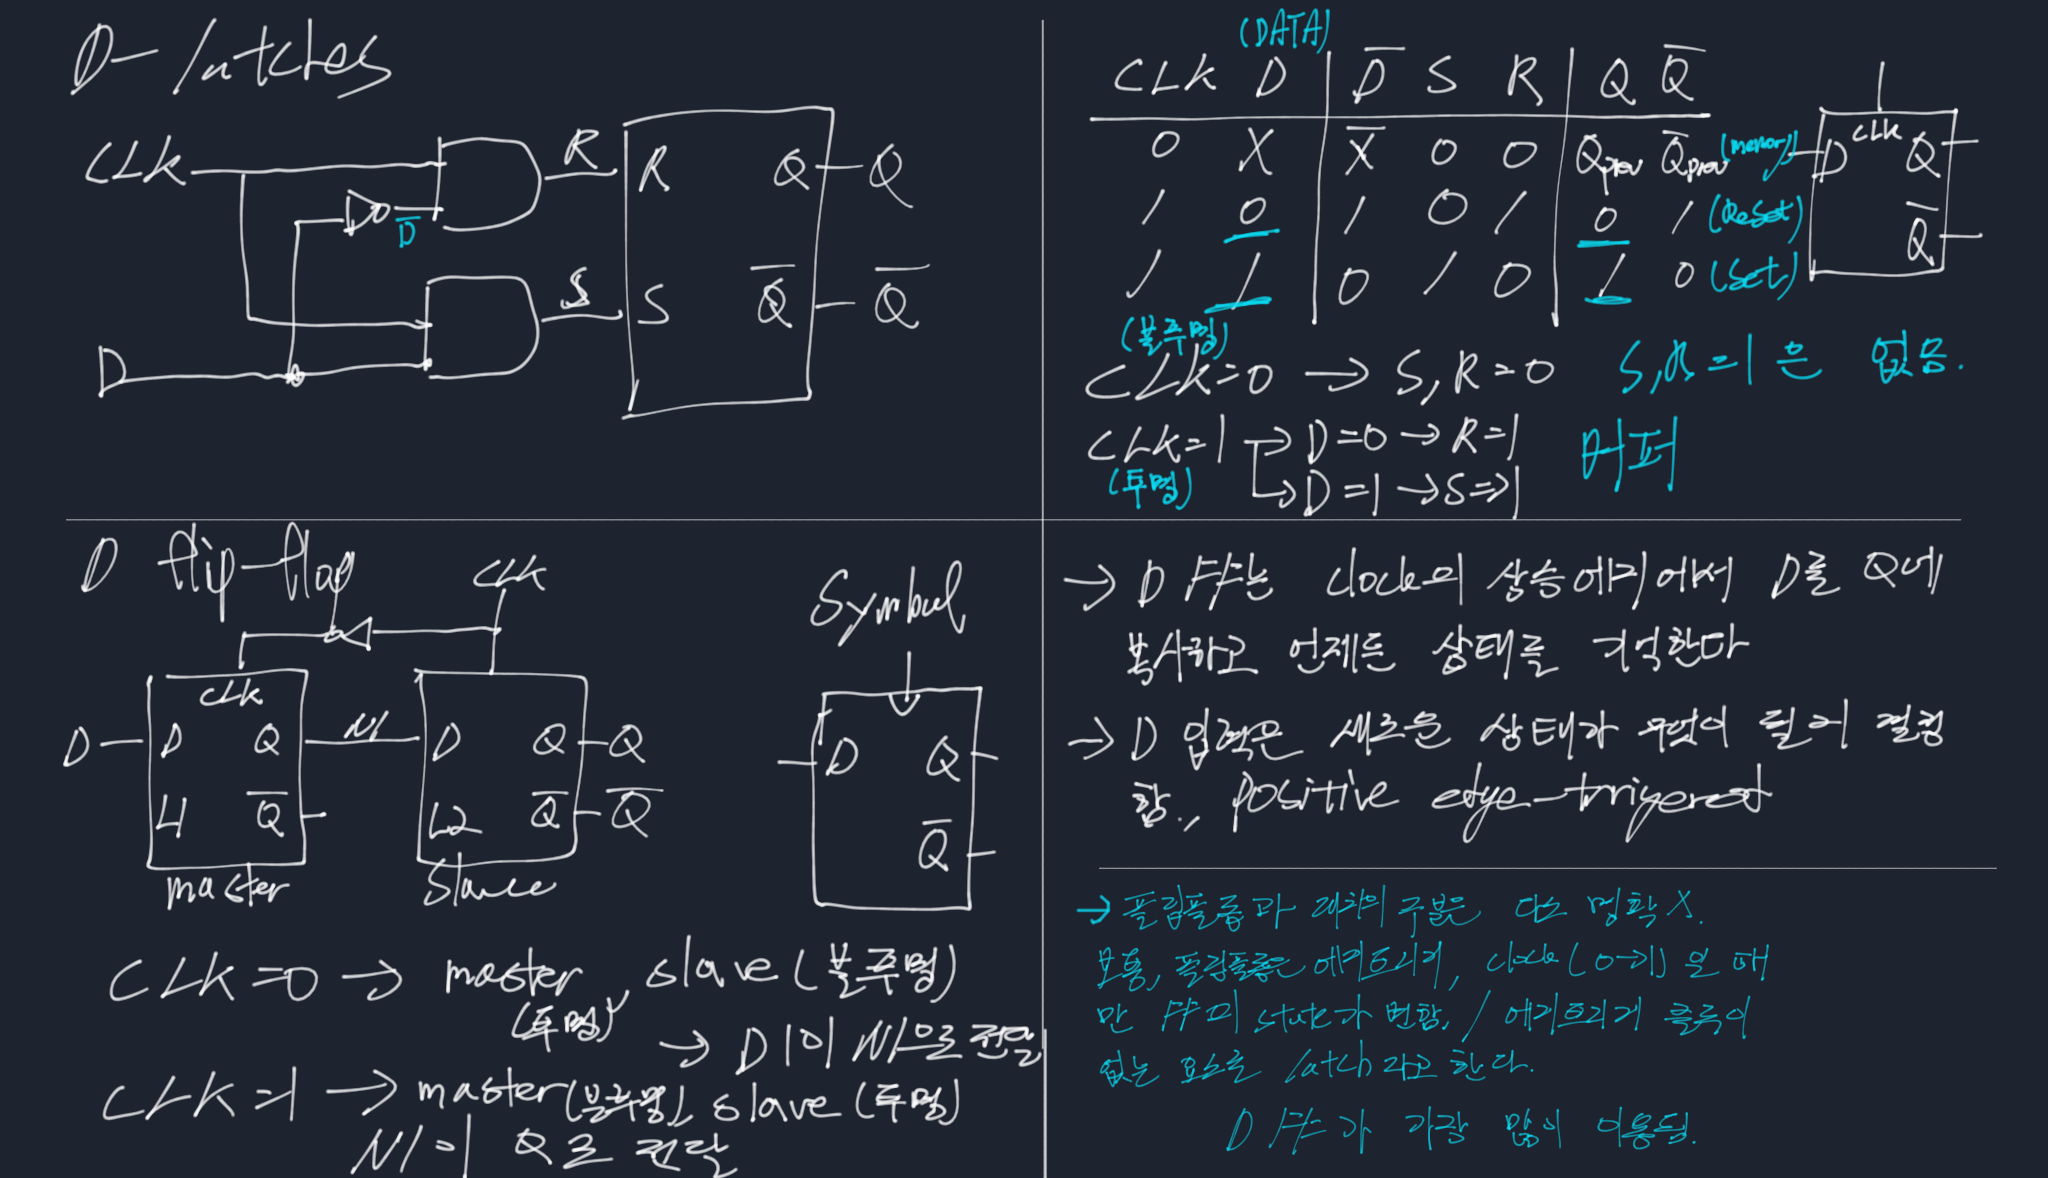 D-latches
CLK
D̅
D
R
S
R Q Q
S Q̅ Q̅
(DATA)
CLK D D̅ S R Q Q̅
0 X X̅ 0 0 Qprev Q̅prev (memory)
1 0 1 0 1 0 1 (Reset)
1 1 0 1 0 1 0 (Set)
CLK
D Q
Q̅
(불투명)
CLK=0 → S, R=0
S,R=1은 없음.
CLK=1 → D=0 → R=1
(투명) → D=1 → S=>1
버퍼
D flip-flop
CLK
CLK
D D Q N1 D Q Q
L1 Q̅ L2 Q̅ Q̅
master slave
Symbol
D Q
Q̅
CLK=0 → master, slave (불투명)
(투명)
→ D1이 N1으로 전달
CLK=1 → master(불투명), slave (투명)
N1이 Q로 전달
→ D FF는 clock의 상승에지에서 D를 Q에
복사하고 언제든 상태를 기억한다
→ D 입력은 새로운 상태가 무엇이 될지 결정
함., positive edge-trigered
→ 플립플롭과 래치의 구분은 다소 명확 X.
보통, 플립플롭은 에지트리거, clock(0→1)일 때
만 FF의 state가 변함. / 에지트리거 클록이
없는 요소를 latch라고 한다.
D FF가 가장 많이 이용됨.